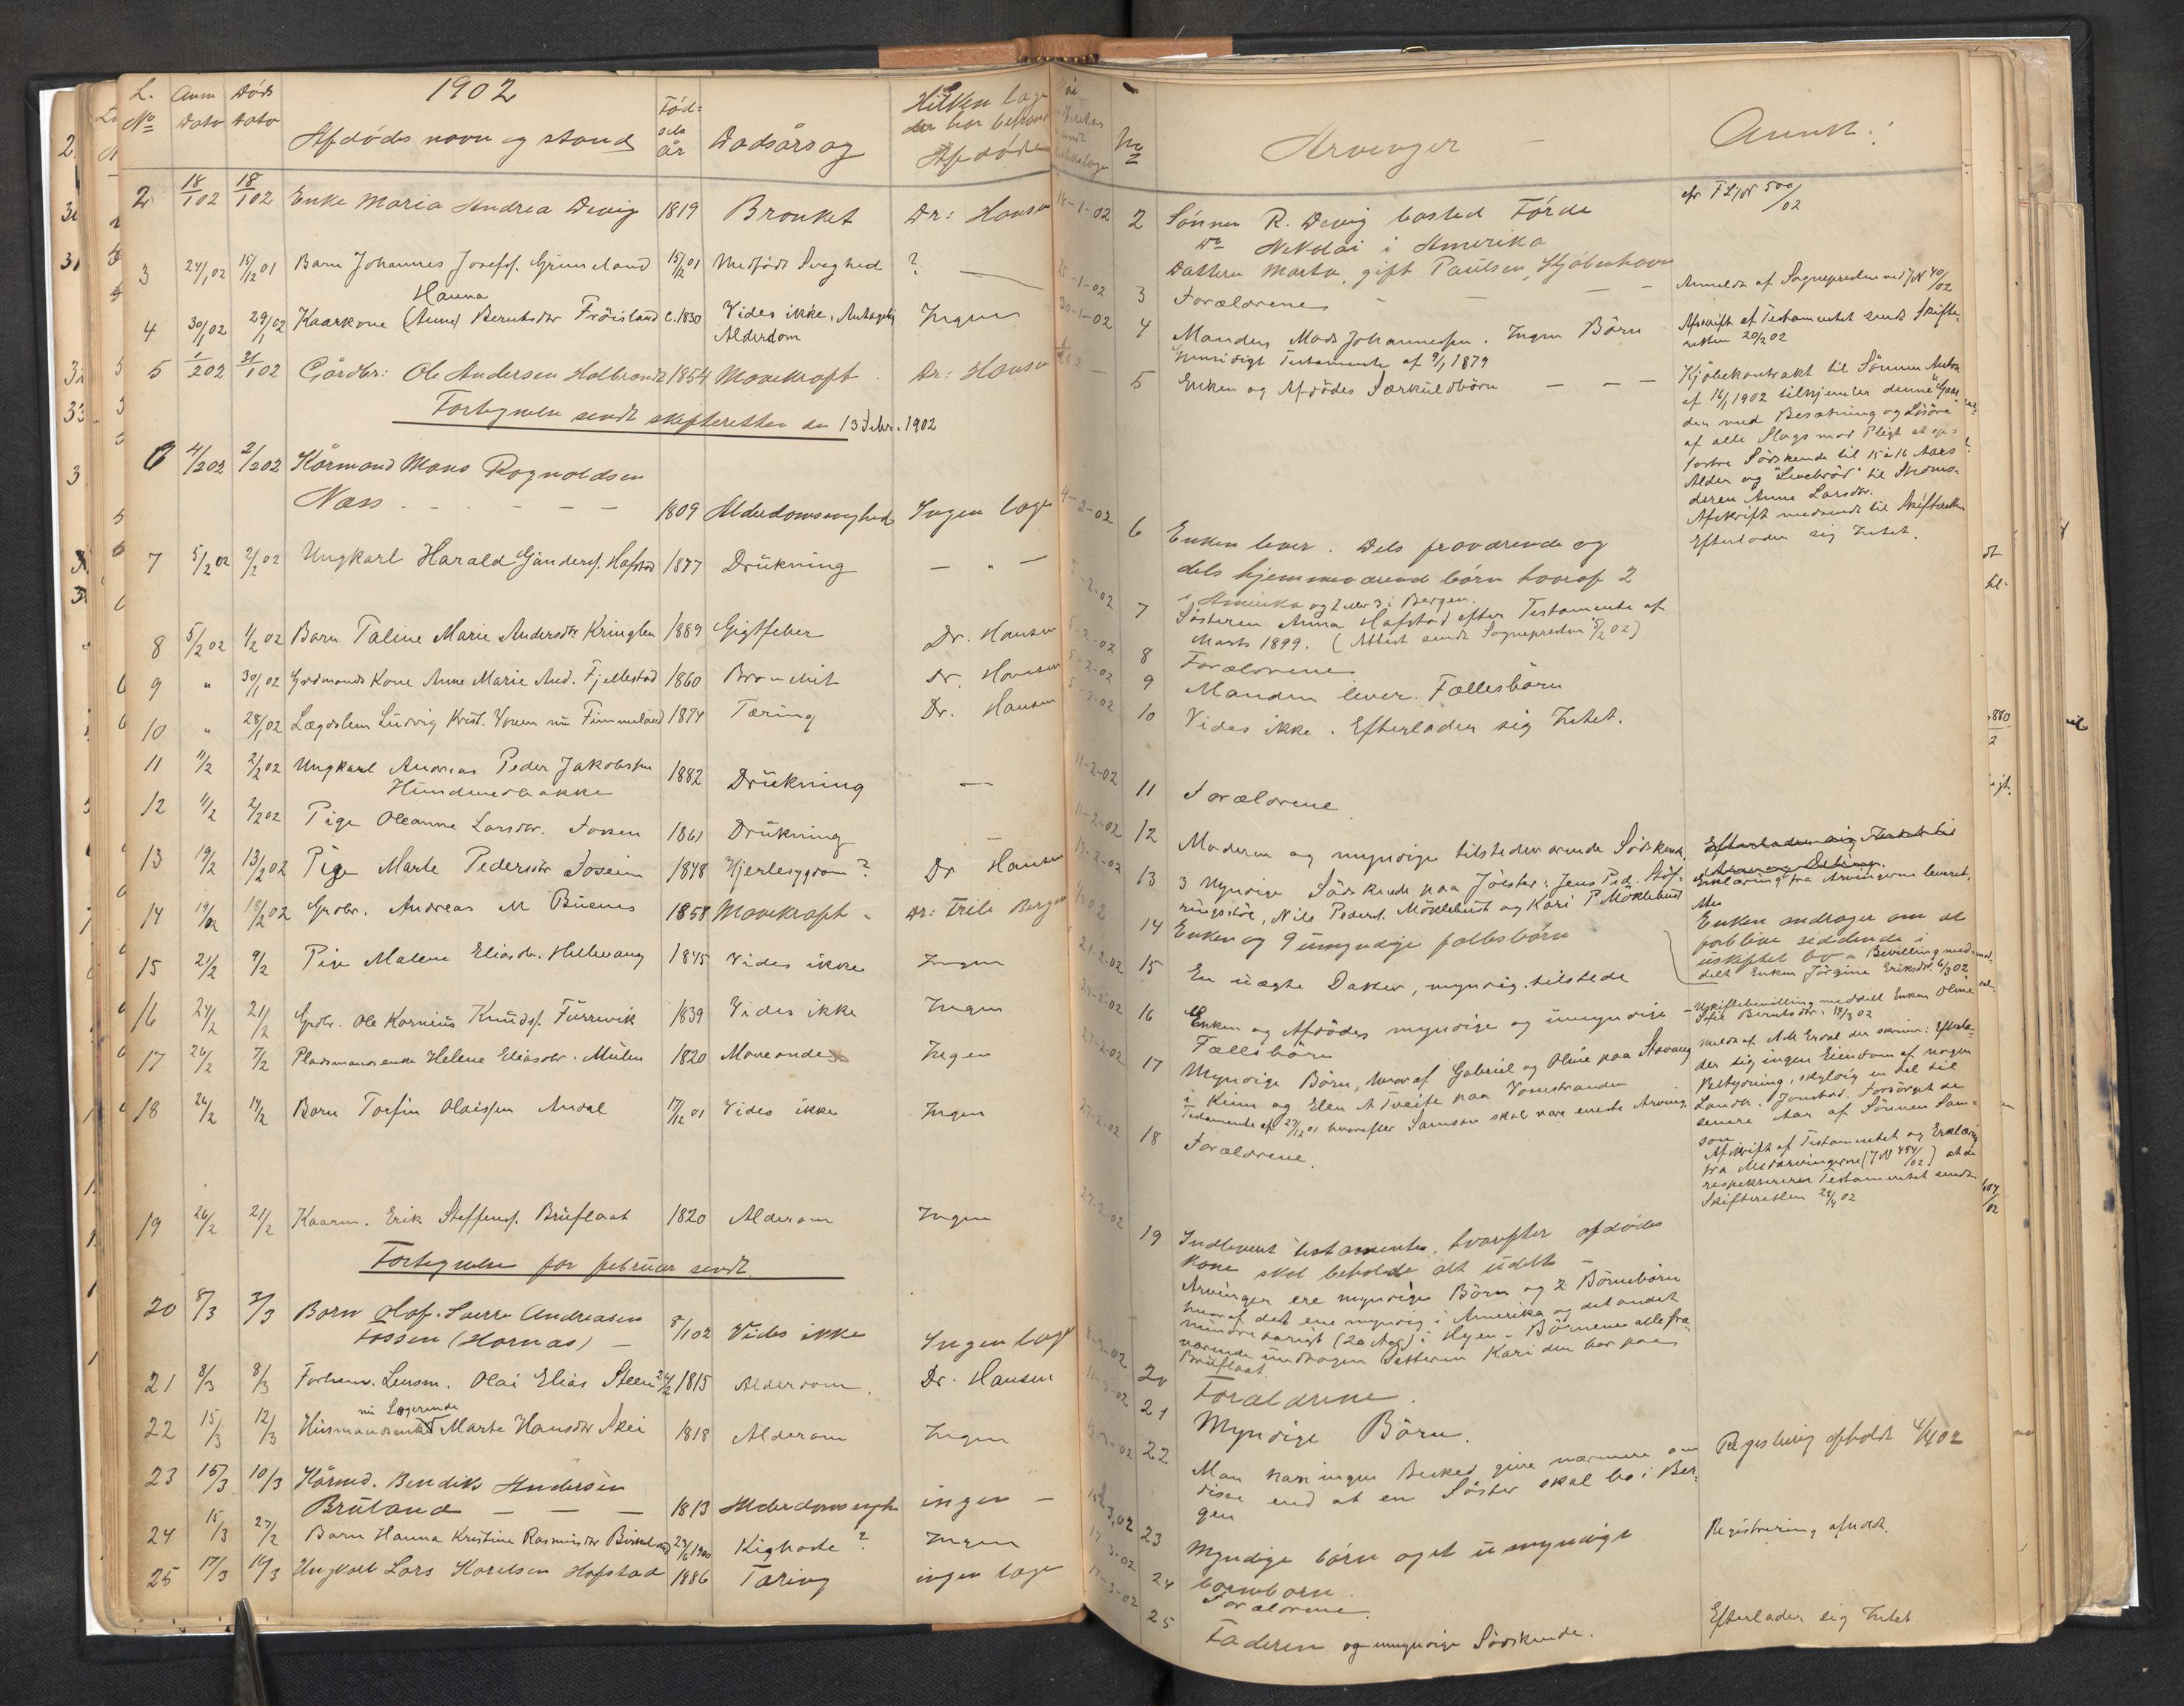 1902
L. No
Anm Dato
Døds Dato
Afdødes navn og stand
Fødselsår
Dødsårsag
Hvilken læge der har behandlet Afdøde
2 18/1 02 18/1 02 Enke Maria Andrea Devig 1819 Bronket Dr: Hansen
3 24/1 02 15/12 01 Barn Johannes Josefs. Grimeland 15/12 01 Medfødt Svaghed ? —
Hanna
4 30/1 02 29/1 02 Kaarkone (Anne) Berntsdtr Fröisland c. 1830 Vides ikke, Antagelig Ingen
Alderdom
5 1/2 02 31/1 02 Gårdbr: Ole Andersen Holbrand 1854 Mavekræft Dr: Hansen
Fortegnelse sendt skifteretten den 13 Febr. 1902
6 4/2 02 2/2 02 Kårmand Mons Rognoldsen
Næss - - - - 1809 Alderdomssvaghed Ingen læge
7 5/2 02 2/2 02 Ungkarl Harald Gunders. Hafstad 1877 Drukning — " —
8 5/2 02 1/2 02 Barn Taline Marie Andersdtr Kringlen 1889 Gigtfeber Dr. Hansen
9 " 30/1 02 Grdmands Kone Anne Marie And. Fjellestad 1860 Bronchit Dr. Hansen
10 " 28/1 02 Lægdslem Ludvig Krist. Vonen nu Fimmeland 1874 Tæring Dr. Hansen
11 11/2 2/2 02 Ungkarl Andreas Peder Jakobsen 1882 Drukning —
12 11/2 2/2 02 Pige Oleanna Larsdtr. Fossen 1861 Drukning —
13 19/2 13/2 02 Pige Marte Pedersdtr 1848 Hjertesygdom? Dr Hansen
14 19/2 18/2 02 Grdbr. Andreas M Buenes 1858 Mavekræft - Dr: Bergen
15 21/2 9/2 Pige Malene Eliasdtr. Hellevang 1845 Vides ikke Ingen
16 24/2 21/2 Grdbr. Ole Kornius Knuds. Furrevik 1839 Vides ikke Ingen
17 26/2 7/2 Pladsmandsenke Helene Eliasdtr. Mulen 1820 Maveonde Ingen
18 26/2 14/2 Barn Torfin Olaissen Andal 17/12 01 Vides ikke Ingen
19 26/2 21/2 Kaarm. Erik Steffens. Bruflaat 1820 Alderdom Ingen
Fortegnelse for februar sendt.
20 8/3 3/3 Barn Olaf Sverre Andreasen
Fossen (Hornæs) - 8/1 02 Vides ikke Ingen læge
21 8/3 8/3 Forhenv. Lensm. Olai Elias Steen 24/2 1815 Alderdom. Dr. Hansen
nu Lægerende
22 15/3 12/3 Husmandsenke Marte Hansdtr Skei 1818 Alderdom Ingen
23 15/3 10/3 Kårmd. Bendik Andersen
Bruland — — — 1813 Alderdomssvagh ingen —
24 15/3 27/2 Barn Hanna Kristine Rasmusdtr Birkeland 23/6 1900 Kighoste? Ingen
25 17/3 16/3 Ungkarl Lars Karelsen Hafstad 1886 Tæring ingen læge
No
Arvinger —
Anmk:
18-1-02 2 Sønnen R. Devig bosted Förde
do Nikolai i Amerika
Datteren Marta, gift Paulsen, Kjöbenhavn
cfr F L JN 500/02
3 Forældrene — — —
Anmeldt af Sognepresten ved JN 40/02
30-1-02 4 Manden Mads Johannessen. Ingen Börn
Gjensidigt Testamente af 9/1 1879
Afskrift af Testamentet sendt Skifteretten 20/2 02
5 Enken og Afdødes Særkuldbörn — — —
Kjöbekontrakt til Sönnen Anders
af 16/1 1902 tilhjemler denne Gaarden
med Besætning og Lösöre
af alle Slags mod Pligt at opfostre
Södskende til 15 à 16 Aars
Alder og "Levebröd" til Stedmoderen
Anne Larsdtr.
Afskrift medsendt til Skifteretten
4-2-02 6 Enken lever. Dels fraværende og
dels hjemmeværende börn hvoraf 2
i Amerika og 2 eller 3 i Bergen.
Efterlader sig Intet.
7 Søsteren Anna Hafstad efter Testamente af
Marts 1899. (Attest sendt Sognepresten 5/2 02)
5-2-02 8 Forældrene
5-2-02 9 Manden lever. Fællesbörn
5-2-02 10 Vides ikke. Efterlader sig Intet.
11-2-02 11 Forældrene
11-2-02 12 Moderen og myndige tilstedeværende Södskende.
13 3 Myndige Södskende paa Jölster: Jens Ped.
Nils Peders. Möklebust og Kari P Möklebust
Erklæring fra Arvingerne leveret.
14 Enken og 9 umyndige fællesbörn
Enken andrager om at
forblive siddende i
uskiftet bo - Bevilling meddelt
Enken Jörgine Eriksdtr. 6/3 02
21-2-02 15 En uægte Datter, myndig, tilstede
16 Enken og Afdödes myndige og umyndige
Fællesbörn
Uskiftebevilling meddelt Enken Oline
Berntsdtr. 19/3 02
27-2-02 17 Myndige Börn, hvoraf Gabriel og Oline paa Stavang
i Kinn og Elen A Tveite paa Vonestranden
Testamente af 27/12 01 hvorefter Samson skal være eneste Arving.
Meldt af A M Erdal der skriver: Efterlader
sig ingen Eiendom af nogen
Betydning, skyldig en del til
Landh. Jonstad. Forsørget de
senere Aar af Sönnen Samson
Afskrift af Testamentet og Erklæring
fra Medarvingerne (JN 494/02) at de
respekterer Testamentet sendt
Skifteretten 28/4 02
27-2-02 18 Forældrene.
27-2-02 19 Indleveret testamente, hvorefter afdödes
kone skal beholde alt udelt —
Arvinger ere myndige Börn og 2 Börnebörn
hvoraf det ene myndig i Amerika og det andet
mindreaarigt (20 Aar) i Hyen - Börnene alle fraværende
undtagen Datteren Kari der bor paa
Bruflaat.
20 Forældrene.
21 Myndige Börn.
22 Man kan ingen Besked give nærmere om
disse end at en Söster skal bo i Bergen
Registrering afholdt 4/4 02
23 Myndige börn og et umyndigt
barnebarn.
Registrering afholdt.
24 Forældrene.
25 Faderen og umyndige Södskende.
Efterlader sig Intet